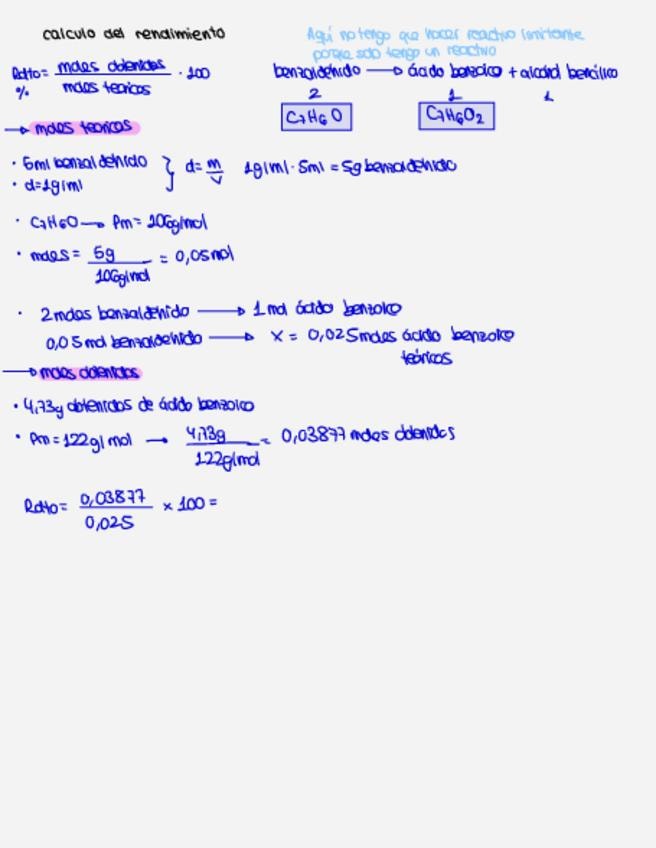 calculo del rendimiento
Aquí no tengo que hacer reactivo limitante
porque solo tengo un reactivo
Rdto = moles obtenidos / moles teoricos · 100
%
benzaldehido → ácido benzoico + alcohol bencílico
2 1 1
C7H6O C7H6O2
→ moles teoricos
· 5ml benzaldehido } d = m/v 1g/ml · 5ml = 5g benzaldehido
· d = 1g/ml
· C7H6O → Pm = 106g/mol
· moles = 5g / 106g/mol = 0,05mol
· 2 moles benzaldehido → 1 mol ácido benzoico
0,05 mol benzaldehido → x = 0,025 moles ácido benzoico
teóricos
→ moles obtenidos
· 4,73g obtenidos de ácido benzoico
· Pm = 122g/mol → 4,73g / 122g/mol = 0,03877 moles obtenidos
Rdto = 0,03877 / 0,025 x 100 =